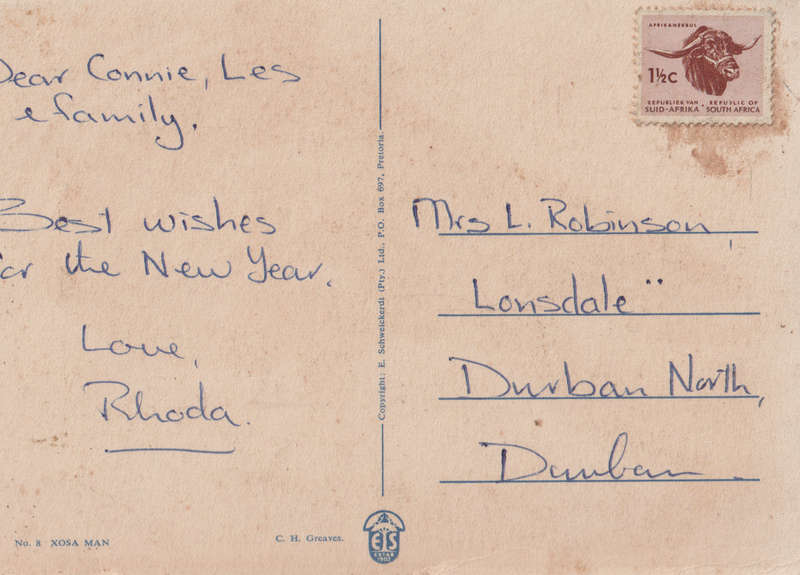 Dear Connie, Les
& family.
Best wishes
for the New Year.
Love,
Rhoda.
No. 8 XOSA MAN
C. H. Greaves.
Copyright: E. Schweickerdt (Pty.) Ltd., P.O. Box 697, Pretoria.
ETS
ESTAB
1902
AFRIKANERBUL
1½c
REPUBLIEK VAN SUID-AFRIKA
REPUBLIC OF SOUTH AFRICA
Mrs L. Robinson,
Lonsdale"
Durban North,
Durban.